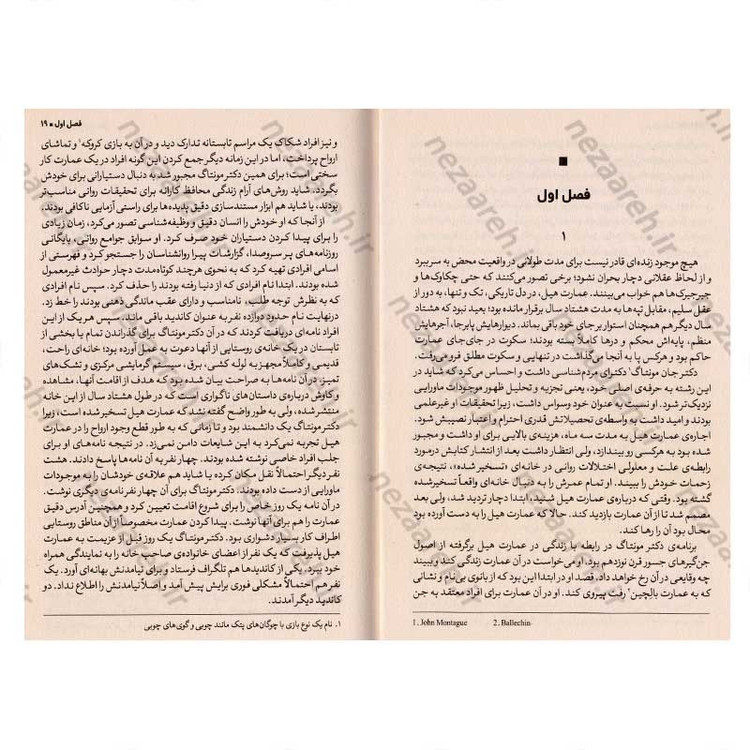 ■
فصل اول
۱
هیچ موجود زنده‌ای قادر نیست برای مدت طولانی در واقعیت محض به سر ببرد
و از لحاظ عقلانی دچار بحران نشود؛ برخی تصور می‌کنند که حتی چکاوک‌ها و
جیرجیرک‌ها هم خواب می‌بینند. عمارت هیل، در دل تاریکی، تک و تنها، به دور از
عقل سلیم، مقابل تپه‌ها به مدت هشتاد سال برقرار مانده بود؛ بعید نبود که هشتاد
سال دیگر هم همچنان استوار بر جای خود باقی بماند. دیوارهایش پابرجا، آجرهایش
منظم، پایه‌اش محکم و درها کاملاً بسته بودند؛ سکوت در جای‌جای عمارت
حاکم بود و هرکس پا به آنجا می‌گذاشت در تنهایی و سکوت مطلق فرو می‌رفت.
دکتر جان مونتاگ۱ دکترای مردم‌شناسی داشت و احساس می‌کرد که شاید در
این رشته به حرفه‌ی اصلی خود، یعنی تجزیه و تحلیل ظهور موجودات ماورایی
نزدیک‌تر شود. او نسبت به عنوان خود وسواس داشت، زیرا تحقیقات او غیرعلمی
بودند و امید داشت به واسطه‌ی تحصیلاتش قدری احترام و اعتبار نصیبش شود.
اجاره‌ی عمارت هیل به مدت سه ماه، هزینه‌ی بالایی برای او داشت و مجبور
شده بود به هرکسی رو بیندازد، ولی انتظار داشت بعد از انتشار کتابش درمورد
رابطه‌ی علت و معلولی اختلالات روانی در خانه‌ای «تسخیر شده»، نتیجه‌ی
زحمات خودش را ببیند. او تمام عمرش را به دنبال خانه‌ای واقعاً تسخیرشده
گشته بود. وقتی که درباره‌ی عمارت هیل شنید، ابتدا دچار تردید شد، ولی بعد
مصمم شد تا از آن عمارت بازدید کند. حالا که عمارت هیل را به دست آورده بود
محال بود آن را رها کند.
برنامه‌ی دکتر مونتاگ در رابطه با زندگی در عمارت هیل برگرفته از اصول
جن‌گیرهای جسور قرن نوزدهم بود. او می‌خواست در آن عمارت زندگی کند و ببیند
چه وقایعی در آن رخ خواهد داد. قصد او در ابتدا این بود که از بانوی بی‌نام و نشانی
که به عمارت بالچین۲ رفت پیروی کند. او در آن عمارت برای افراد معتقد به جن
1. John Montague 2. Ballechin
فصل اول ■ ۱۹
و نیز افراد شکاک یک مراسم تابستانه تدارک دید و در آن به بازی کروکه۱ و تماشای
ارواح پرداخت، اما در این زمانه دیگر جمع کردن این گونه افراد در یک عمارت کار
سختی است؛ برای همین دکتر مونتاگ مجبور شد به دنبال دستیارانی برای خودش
بگردد. شاید روش‌های آرام زندگی محافظ کارانه برای تحقیقات روانی مناسب‌تر
بودند، یا شاید هم ابزار مستندسازی دقیق پدیده‌ها برای راستی آزمایی ناکافی بودند.
از آنجا که او خودش را انسان دقیق و وظیفه‌شناسی تصور می‌کرد، زمان زیادی
را برای پیدا کردن دستیاران خود صرف کرد. او سوابق جوامع روانی، بایگانی
روزنامه‌های پر سروصدا، گزارشات پیرا روانشناسان را جستجو کرد و فهرستی از
اسامی افرادی تهیه کرد که به نحوی هرچند کوتاه‌مدت دچار حوادث غیرمعمول
شده بودند. ابتدا نام افرادی که از دنیا رفته بودند را حذف کرد. سپس نام افرادی
که به نظرش توجه طلب، نامناسب و دارای عقب ماندگی ذهنی بودند را خط زد.
درنهایت نام حدود دوازده نفر به عنوان کاندید باقی ماند. سپس هر یک از این
افراد نامه‌ای دریافت کردند که در آن دکتر مونتاگ برای گذراندن تمام یا بخشی از
تابستان در یک خانه‌ی روستایی از آنها دعوت به عمل آورده بود؛ خانه‌ای راحت،
قدیمی و کاملاً مجهز به لوله کشی، برق، سیستم گرمایشی مرکزی و تشک‌های
تمیز. در آن نامه‌ها به صراحت بیان شده بود که هدف از اقامت آنها، مشاهده
و کاوش درباره‌ی داستان‌های ناگواری است که در طول هشتاد سال از این خانه
منتشر شده، ولی به طور واضح گفته نشد که عمارت هیل تسخیر شده است، زیرا
دکتر مونتاگ یک دانشمند بود و تا زمانی که به طور قطع وجود ارواح را در عمارت
هیل تجربه نمی‌کرد به این شایعات دامن نمی‌زد. در نتیجه نامه‌های او برای
جلب افراد خاصی نوشته شده بودند. چهار نفر به آن نامه‌ها پاسخ دادند. هشت
نفر دیگر احتمالاً نقل مکان کرده یا شاید هم علاقه‌ی خودشان را به موجودات
ماورایی از دست داده بودند. دکتر مونتاگ برای آن چهار نفر نامه‌ی دیگری نوشت.
در آن نامه یک روز خاص را برای شروع اقامت تعیین کرد و همچنین آدرس دقیق
عمارت را هم برای آنها نوشت. پیدا کردن عمارت مخصوصاً از آن مناطق روستایی
اطراف کار بسیار دشواری بود. دکتر مونتاگ یک روز قبل از عزیمت به عمارت
هیل پذیرفت که یک نفر از اعضای خانواده‌ی صاحب خانه را به نمایندگی همراه
خود ببرد. یکی از کاندیدها هم تلگراف فرستاد و برای نیامدنش بهانه‌ای آورد. یک
نفر هم احتمالاً مشکلی فوری برایش پیش آمد و اصلاً نیامدنش را اطلاع نداد. دو
کاندید دیگر آمدند.
۱. نام یک نوع بازی با چوگان‌های پتک مانند چوبی و گوی‌های چوبی
nezaareh.ir